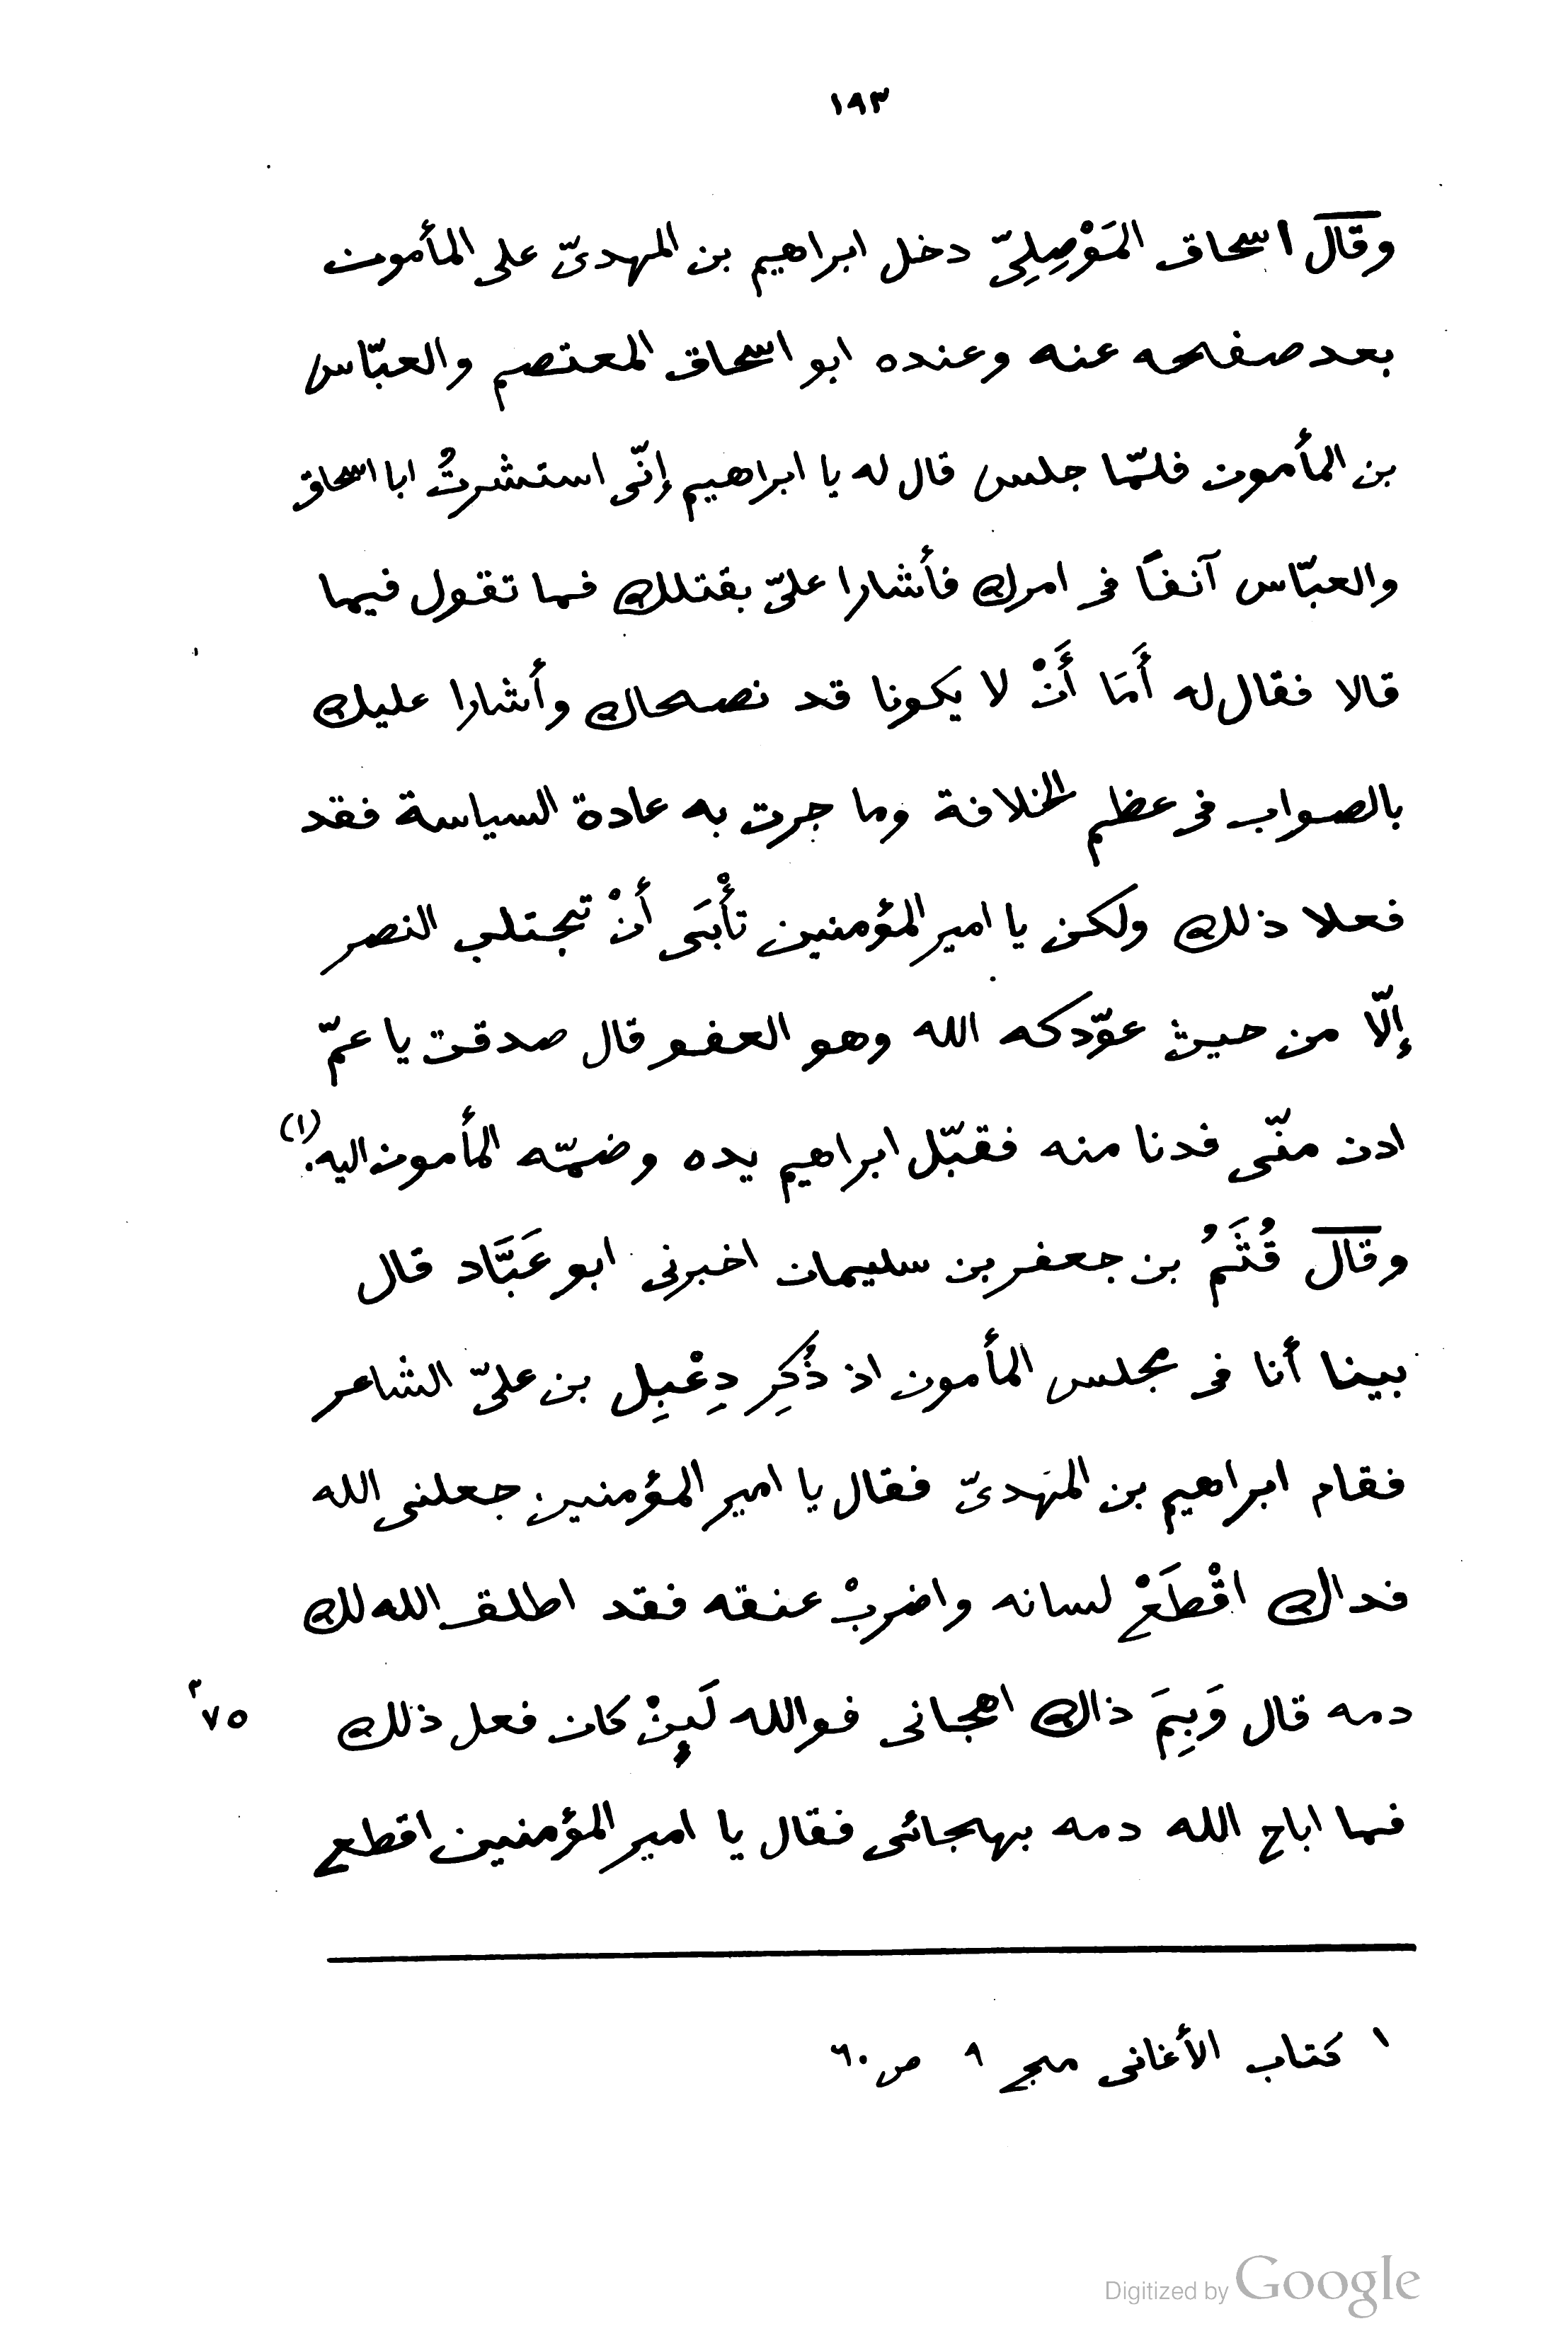 ١٩٣
وقال اسحاق المَوْصِلِىّ دخل ابراهيم بن المهدىّ على المأمون
بعد صفحه عنه وعنده ابو اسحاق المعتصم والعبّاس
بن المأمون فلمّا جلس قال له يا ابراهيم إنّى استشرتُ ابا اسحاق
والعبّاس آنفًا فى امرك فأشارا علىّ بقتلك فما تقول فيما
قالا فقال له أَمَا أَنْ لا يكونا قد نصحاك وأشارا عليك
بالصواب فى عظم الخلافة وما جرت به عادة السياسة فقد
فعلا ذلك ولكن يا امير المؤمنين تأْبَى أنْ تجتلب النصر
إلّا من حيث عوّدكه الله وهو العفو قال صدقت يا عمّ
ادن منّى فدنا منه فقبّل ابراهيم يده وضمّه المأمون اليه.(١)
وقال قُثَمُ بن جعفر بن سليمان اخبرنى ابو عَبَّاد قال
بينا أنا فى مجلس المأمون اذ ذُكِر دِعْبِل بن علىّ الشاعر
فقام ابراهيم بن المهدىّ فقال يا امير المؤمنين جعلنى الله
فداك اقْطَعْ لسانه واضربْ عنقه فقد اطلق الله لك
دمه قال وَبِمَ ذاك اهجانى فوالله لَئِنْ كان فعل ذلك
٧٥
فما اباح الله دمه بهجائى فقال يا امير المؤمنين اقطع
١ كتاب الأغانى مج ٩ ص ٦٠
Digitized by Google